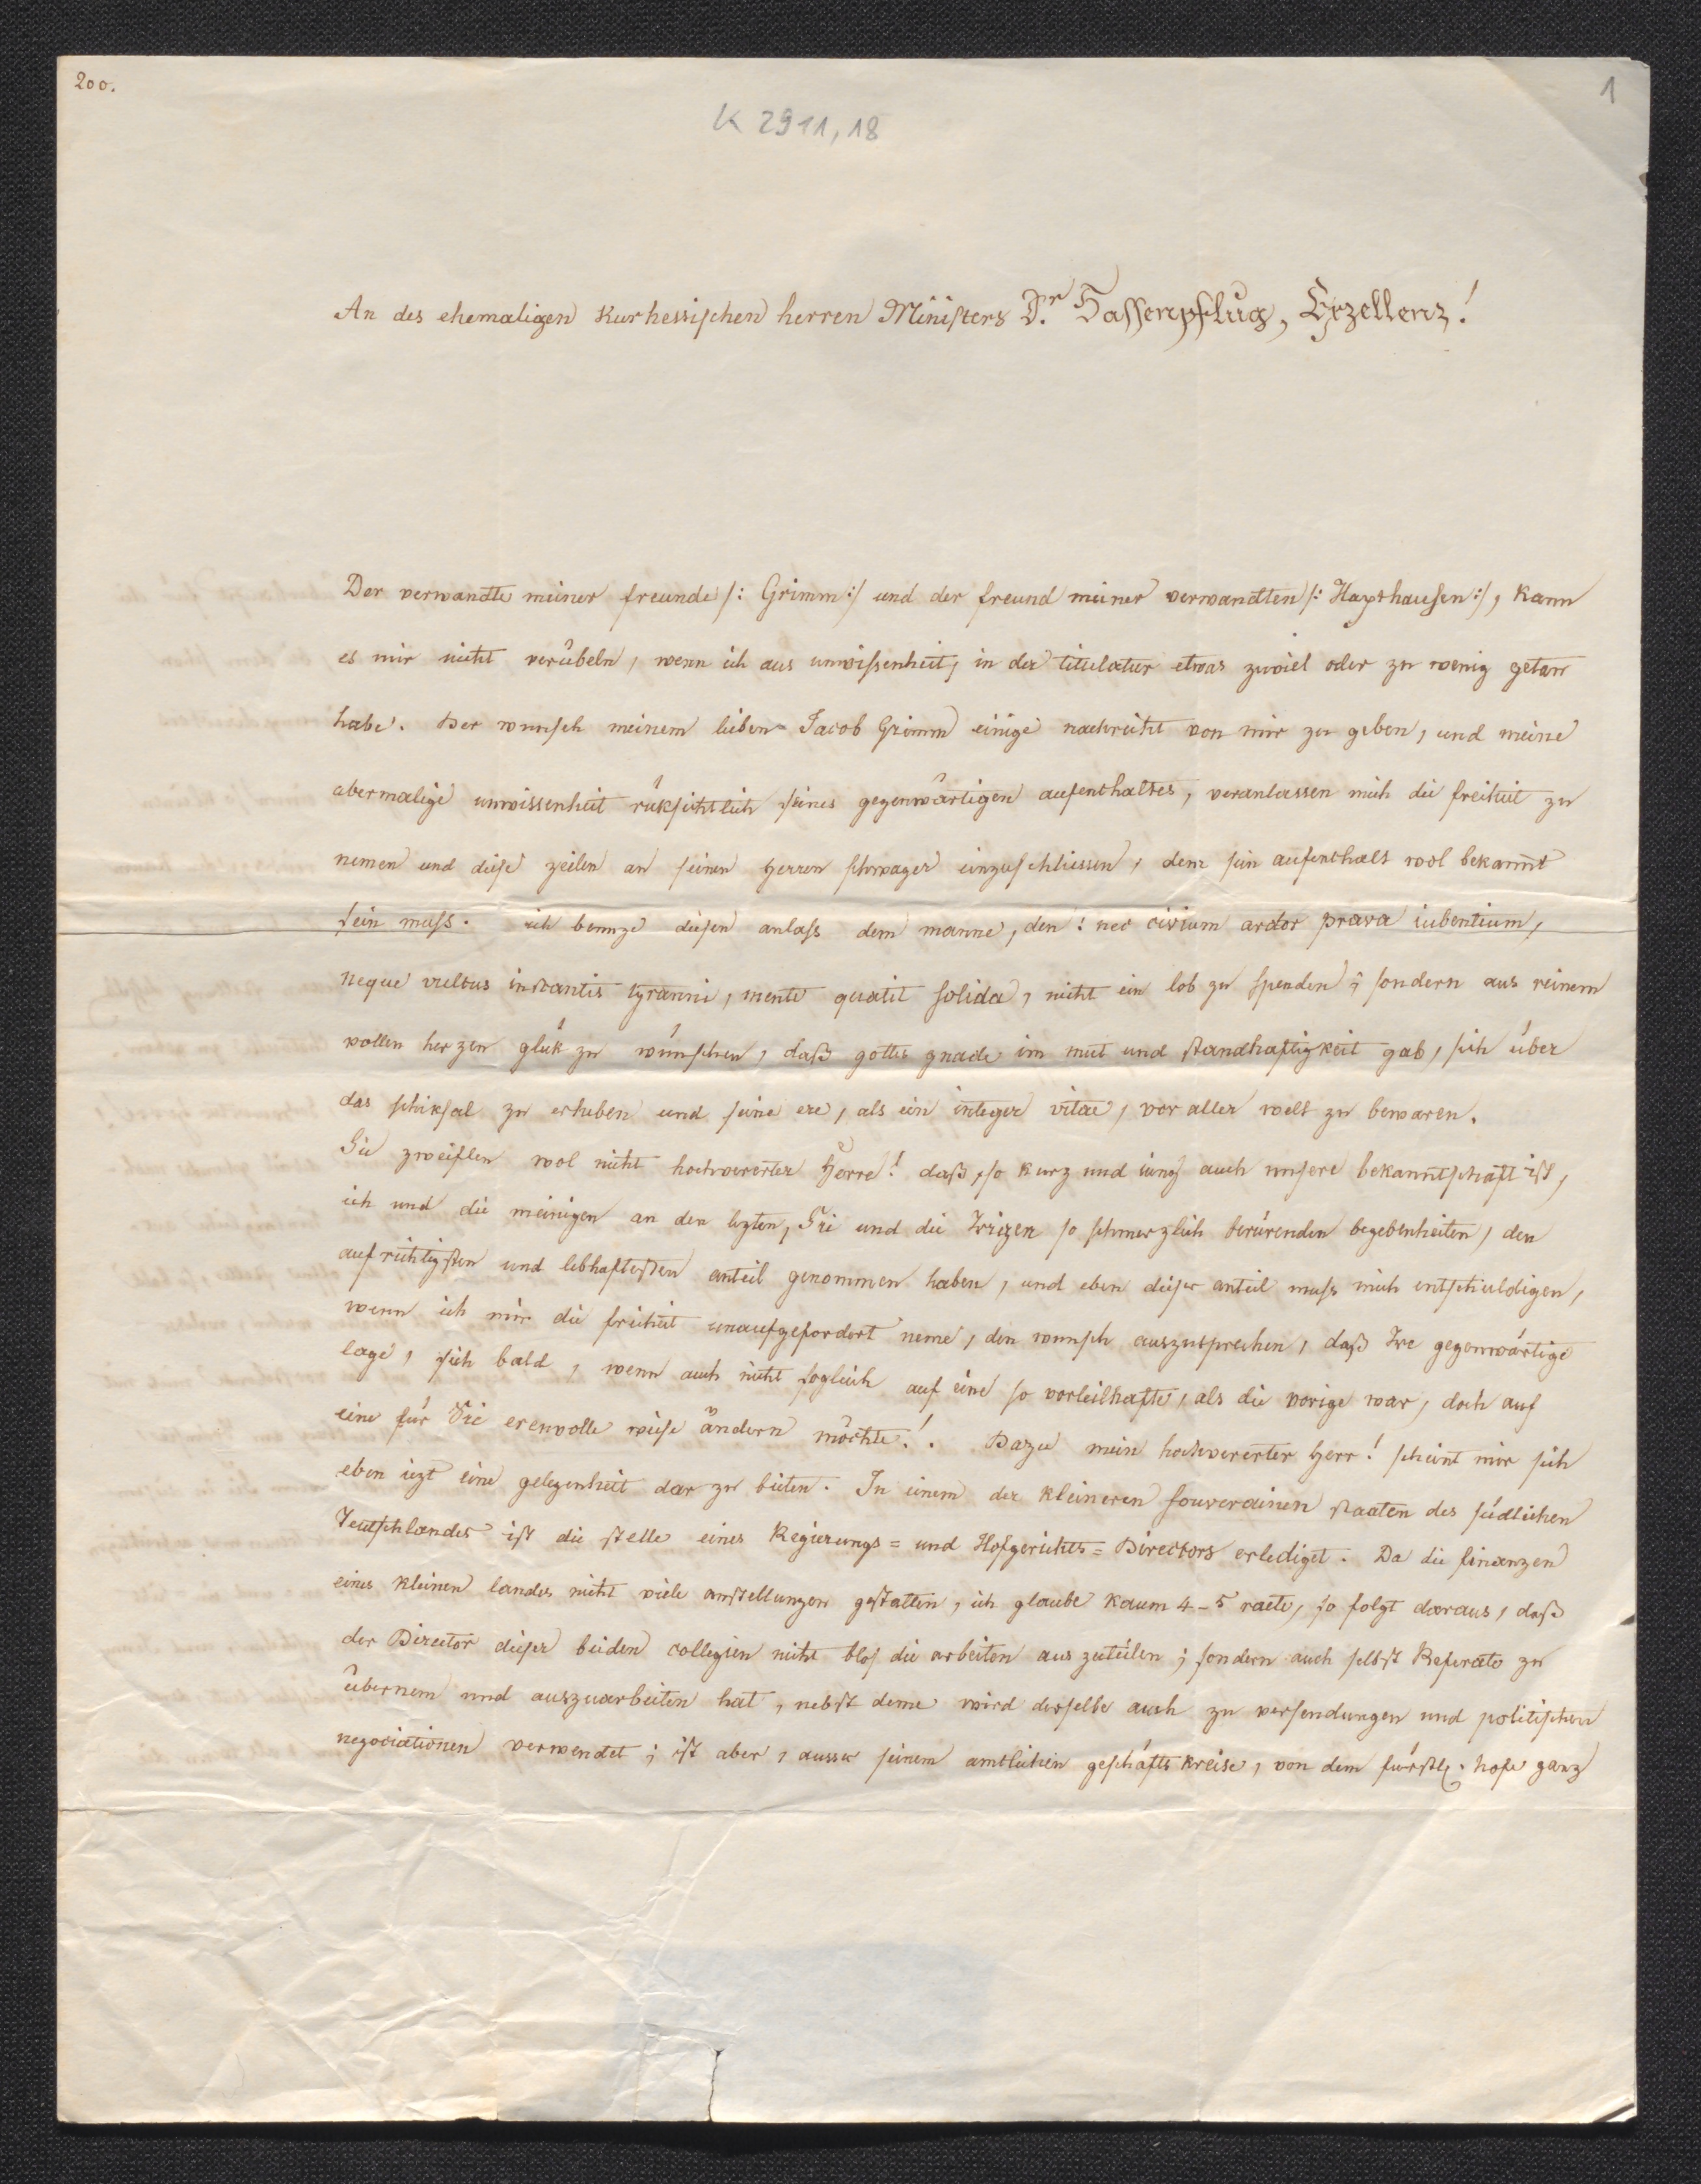 200.
1
K 2911, 18
An des ehemaligen Kurhessischen herren Ministers Dr. Hassenpflug, Exzellenz!
Der verwandte meiner freunde /: Grimm :/ und der freund meiner verwandten /: Haxthausen :/, kann
es mir nicht verübeln, wenn ich aus unwissenheit, in der titulatur etwas zuviel oder zu wenig getan
habe. Der wunsch meinem lieben Jacob Grimm einige nachricht von mir zu geben, und meine
abermalige unwissenheit rüksichtlich seines gegenwärtigen aufenthaltes, veranlassen mich die freiheit zu
nemen und diese zeilen an seinen Herren schwager einzuschliessen, dem sein aufenthalt wol bekannt
sein muss. ich benuze diesen anlass dem manne, den! nec civium ardor prava iubentium,
neque vultus instantis tyranni, mente quatit solida, nicht ein lob zu spenden; sondern aus reinem
vollen herzen glük zu wünschen, daß gottes gnade im mut und standhaftigkeit gab, sich über
das schiksal zu erheben und seine ere, als ein integer vitae, vor aller welt zu bewaren.
Sie zweiflen wol nicht hochvererter Herre! daß, so kurz und iung auch unsere bekanntschaft ist,
ich und die meinigen an den lezten, Sie und die Irigen so schmerzlich berürenden begebenheiten, den
aufrichtigsten und lebhaftesten anteil genommen haben, und eben dieser anteil muss mich entschuldigen,
wenn ich mir die freiheit unaufgefordert neme, den wunsch auszusprechen, daß Ire gegenwärtige
lage, sich bald, wenn auch nicht sogleich auf eine so vorteilhafte, als die vorige war, doch auf
eine für Sie erenvolle weise ändern möchte!. Dazu mein hochvererter Herr! scheint mir sich
eben iezt eine gelegenheit dar zu bieten. In einem der kleineren souverainen staaten des südlichen
Teutschlandes ist die stelle eines Regierungs= und Hofgerichts=Directors erlediget. Da die finanzen
eines kleinen landes nicht viele anstellungen gestatten, ich glaube kaum 4–5 raete, so folgt daraus, daß
der Director dieser beiden collegien nicht blos die arbeiten aus zuteilen; sondern auch selbst Referate zu
übernem und auszuarbeiten hat, nebst deme wird derselbe auch zu versendungen und politischen
negociationen verwendet; ist aber, ausser seinem amtlichen geschäfts kreise, von dem fürstl. hofe ganz